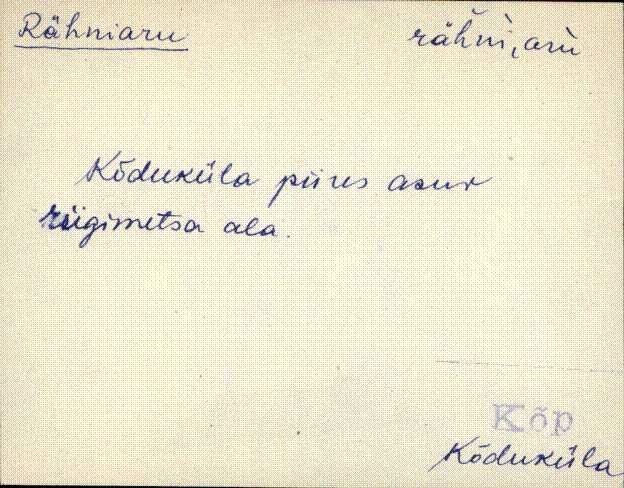 Rähniaru
rähni, aru
Kõduküla piires asuv
riigimetsa ala.
Kõp
Kõduküla